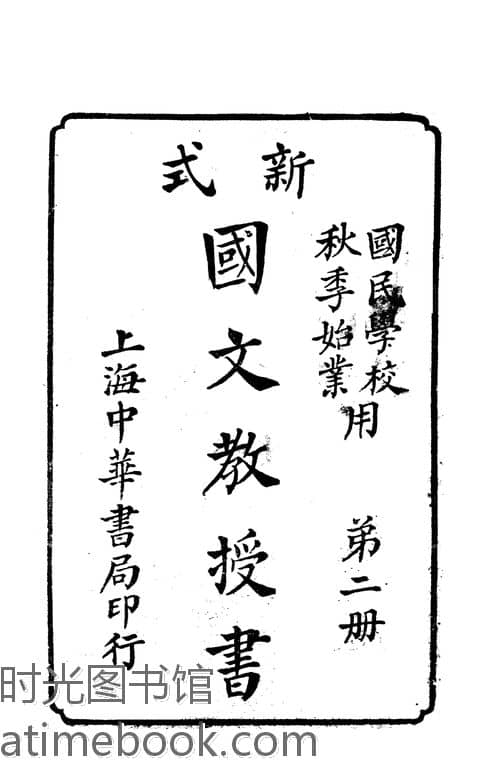 新式
國民學校
秋季始業
用
弟二册
國文教授書
上海中華書局印行
时光图书馆
atimebook.com